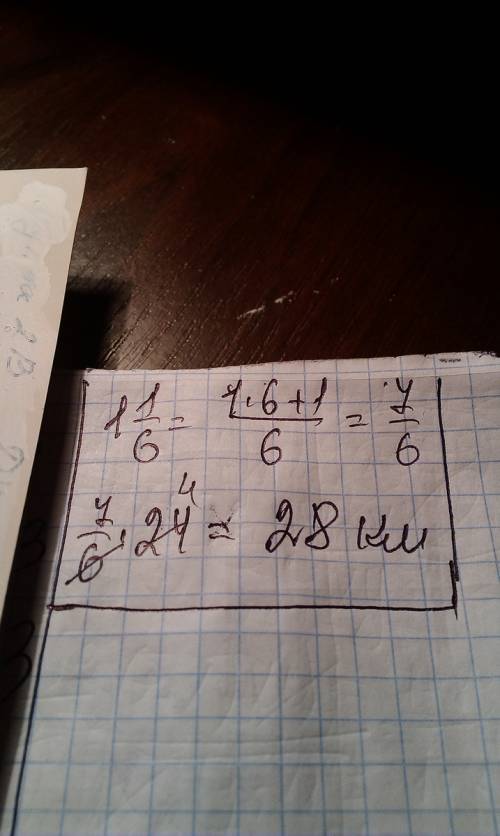 1 1/6 = 1·6+1/6 = 7/6
7/6 · 24 4 = 28 км
2 В